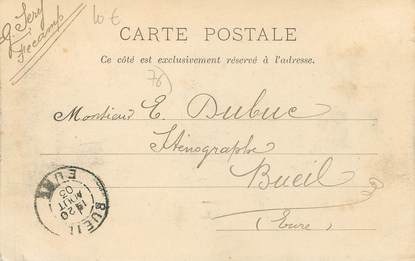 G. Sery
Fécamp
10 €
CARTE POSTALE
Ce côté est exclusivement réservé à l'adresse.
76
Monsieur E. Dubuc
Sténographe
Bueil
(Eure)
BUEIL
EURE
20
AOUT
03